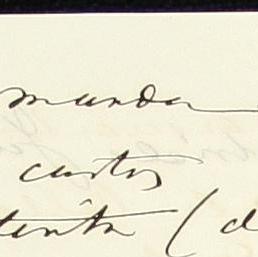 munda
custos
tenta (d